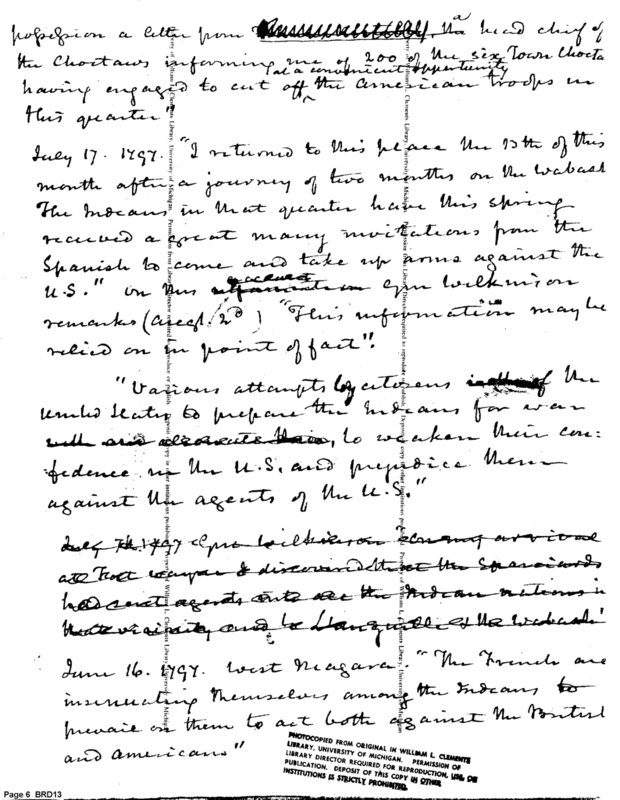 possession a letter from the head chief of
the Choctaws informing me of 200 of the six Town Chocta
at a convenient opportunity
having engaged to cut off the American troops in
this quarter"
July 17. 1797. "I returned to this place the 13th of this
month after a journey of two months on the Wabash
The Indians in that quarter have this spring
received a great many invitations from the
Spanish to come and take up arms against the
U.S." on this Genl Wilkinson
remarks ( 2d ) "This information may be
relied on in point of fact".
"Various attempts by citizens of the
United States to prepare the Indians for war
to weaken their con:
fedence in the U.S. and prejudice them
against the agents of the U.S."
July 1797 Genl Wilkinson on my arrival
at Fort Wayne I discovered that the Spaniards
had sent agents into all the Indian nations in
that vicinity and to the Wabash
June 16. 1797. West Niagara. "The French are
insinuating themselves among the Indians to
prevail on them to act both against the British
and Americans"
PHOTOCOPIED FROM ORIGINAL IN WILLIAM L. CLEMENTS
LIBRARY, UNIVERSITY OF MICHIGAN. PERMISSION OF
LIBRARY DIRECTOR REQUIRED FOR REPRODUCTION, USE, OR
PUBLICATION. DEPOSIT OF THIS COPY IN OTHER
INSTITUTIONS IS STRICTLY PROHIBITED.
Page 6 BRD13